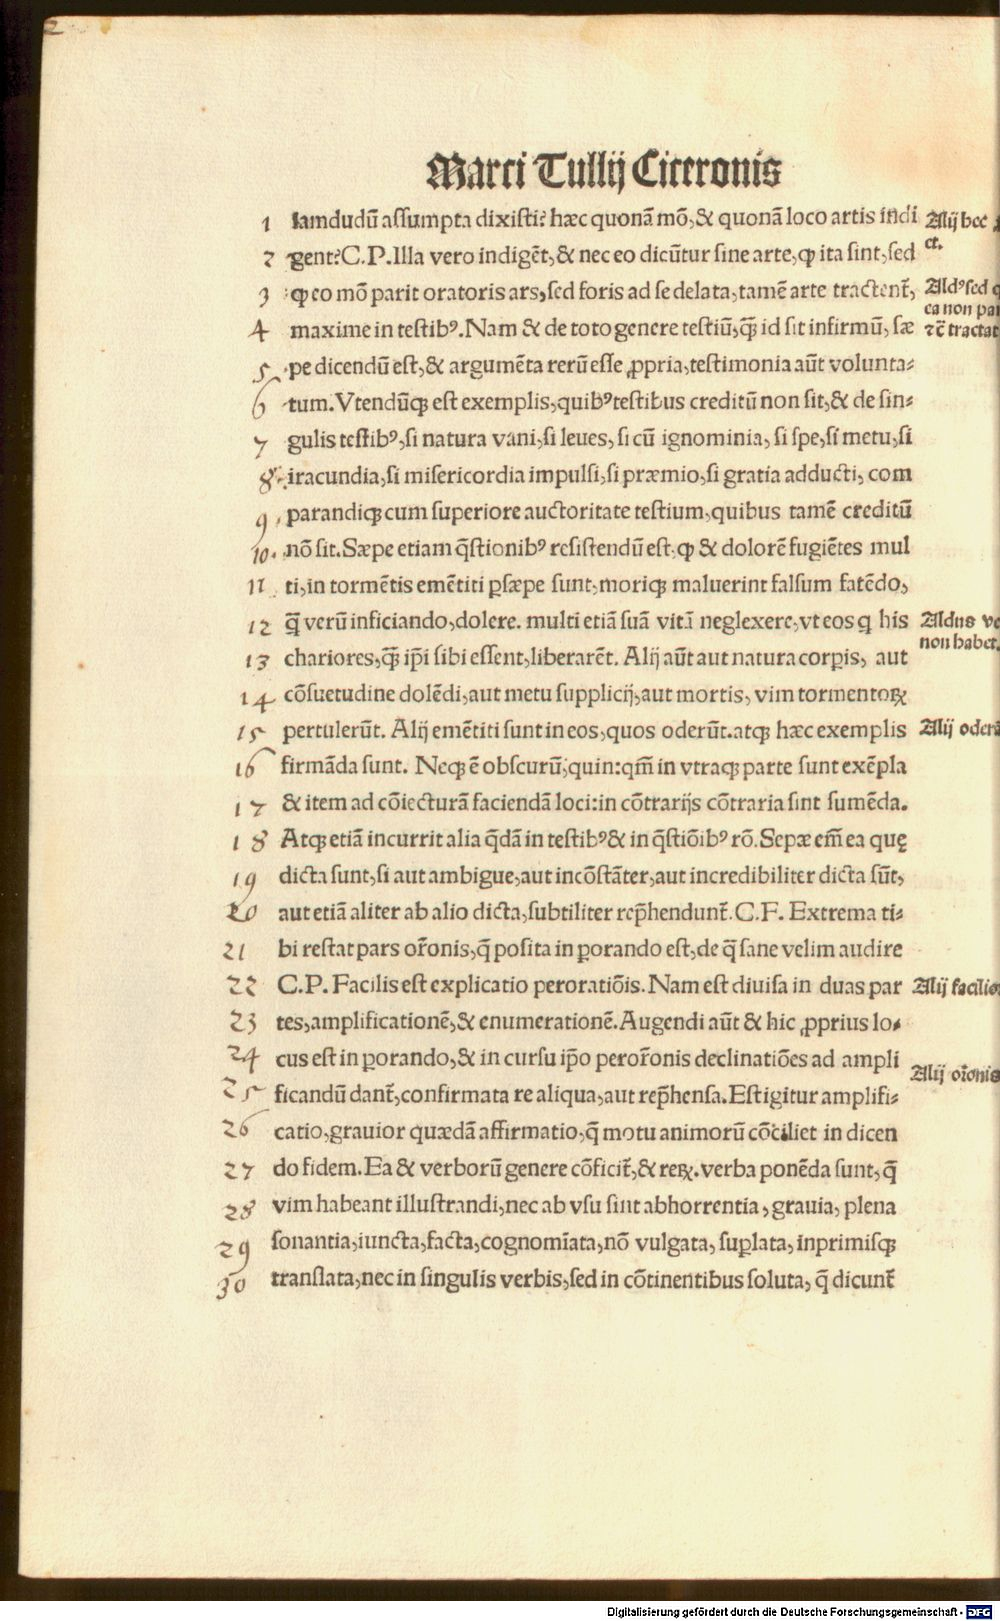 Marci Tullij Ciceronis
1 Iamdudū assumpta dixisti? hæc quonā mō, & quonā loco artis indi
Alij hec
ct.
2 gent? C.P. Illa vero indigēt, & nec eo dicūtur sine arte, ꝙ ita sint, sed
3 ꝙ eo mō parit oratoris ars, sed foris ad se delata, tamē arte tractent᷑,
Ald⁹ sed
ea non
⁊č tractat
4 maxime in testib⁹. Nam & de toto genere testiū, q̄ꝫ id sit infirmū, sæ
5 pe dicendū est, & argumēta rerū esse ꝓpria, testimonia aūt volunta⸗
6 tum. Vtendūqꝫ est exemplis, quib⁹ testibus creditū non sit, & de sin⸗
7 gulis testib⁹, si natura vani, si leues, si cū ignominia, si spe, si metu, si
8 iracundia, si misericordia impulsi, si præmio, si gratia adducti, com
9 parandiqꝫ cum superiore auctoritate testium, quibus tamē creditū
10 nō sit. Sæpe etiam q̄stionib⁹ resistendū est, ꝙ & dolorē fugiētes mul
11 ti, in tormētis emētiti ꝑsæpe sunt, moriqꝫ maluerint falsum fatēdo,
12 q̄ꝫ verū inficiando, dolere. multi etiā suā vitā neglexere, vt eos q̄ his
Aldus
non habet.
13 chariores, q̄ꝫ ip̄i sibi essent, liberarēt. Alij aūt aut natura corꝑis, aut
14 cōsuetudine dolēdi, aut metu supplicij, aut mortis, vim tormentoꝝ
15 pertulerūt. Alij emētiti sunt in eos, quos oderūt. atqꝫ hæc exemplis
Alij
16 firmāda sunt. Neqꝫ ē obscurū, quin: qm̄ in vtraqꝫ parte sunt exēpla
17 & item ad cōiecturā faciendā loci: in cōtrarijs cōtraria sint sumēda.
18 Atqꝫ etiā incurrit alia q̄dā in testib⁹ & in q̄stiōib⁹ rō. Sepæ em̄ ea quę
19 dicta sunt, si aut ambigue, aut incōstāter, aut incredibiliter dicta sūt,
20 aut etiā aliter ab alio dicta, subtiliter rep̄hendunt᷑. C.F. Extrema ti⸗
21 bi restat pars or̄onis, q̄ posita in ꝑorando est, de q̄ sane velim audire
22 C.P. Facilis est explicatio peroratiōis. Nam est diuisa in duas par
Alij facilior
23 tes, amplificationē, & enumerationē. Augendi aūt & hic ꝓprius lo⸗
24 cus est in ꝑorando, & in cursu ip̄o peror̄onis declinatiōes ad ampli
Alij or̄onis
25 ficandū dant᷑, confirmata re aliqua, aut rep̄hensa. Est igitur amplifi⸗
26 catio, grauior quædā affirmatio, q̄ motu animorū cōciliet in dicen
27 do fidem. Ea & verborū genere cōficit᷑, & reꝝ. verba ponēda sunt, q̄
28 vim habeant illustrandi, nec ab vsu sint abhorrentia, grauia, plena
29 sonantia, iuncta, facta, cognomīata, nō vulgata, suꝑlata, inprimisqꝫ
30 translata, nec in singulis verbis, sed in cōtinentibus soluta, q̄ dicunt᷑
Digitalisierung gefördert durch die Deutsche Forschungsgemeinschaft - DFG